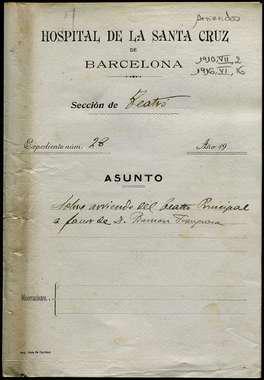 HOSPITAL DE LA SANTA CRUZ
DE
BARCELONA
1910.VII.2
1916.VI.16
Sección de Teatro
Expediente núm. 28 Año 19
ASUNTO
Sobre arriendo del teatro Principal
a favor de D. Ramon Franqueza
Observaciones